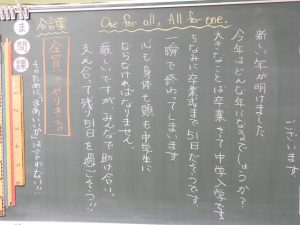 ございます
新しい年が明けました
今年はどんな年になるでしょうか?
大きなことは卒業、そして中学入学です
ちなみに卒業式まで51日だそうです
一瞬で終わってしまいます
心も身体も頭も中学生に
ならなければなりません。
厳しいですが、みんなで助け合い、
支え合って残り51日を過ごそう!!
One for all, All for one.
合言葉
全員でやりきる。
そのために「まあいいか」は言わない!!
ま
問
課